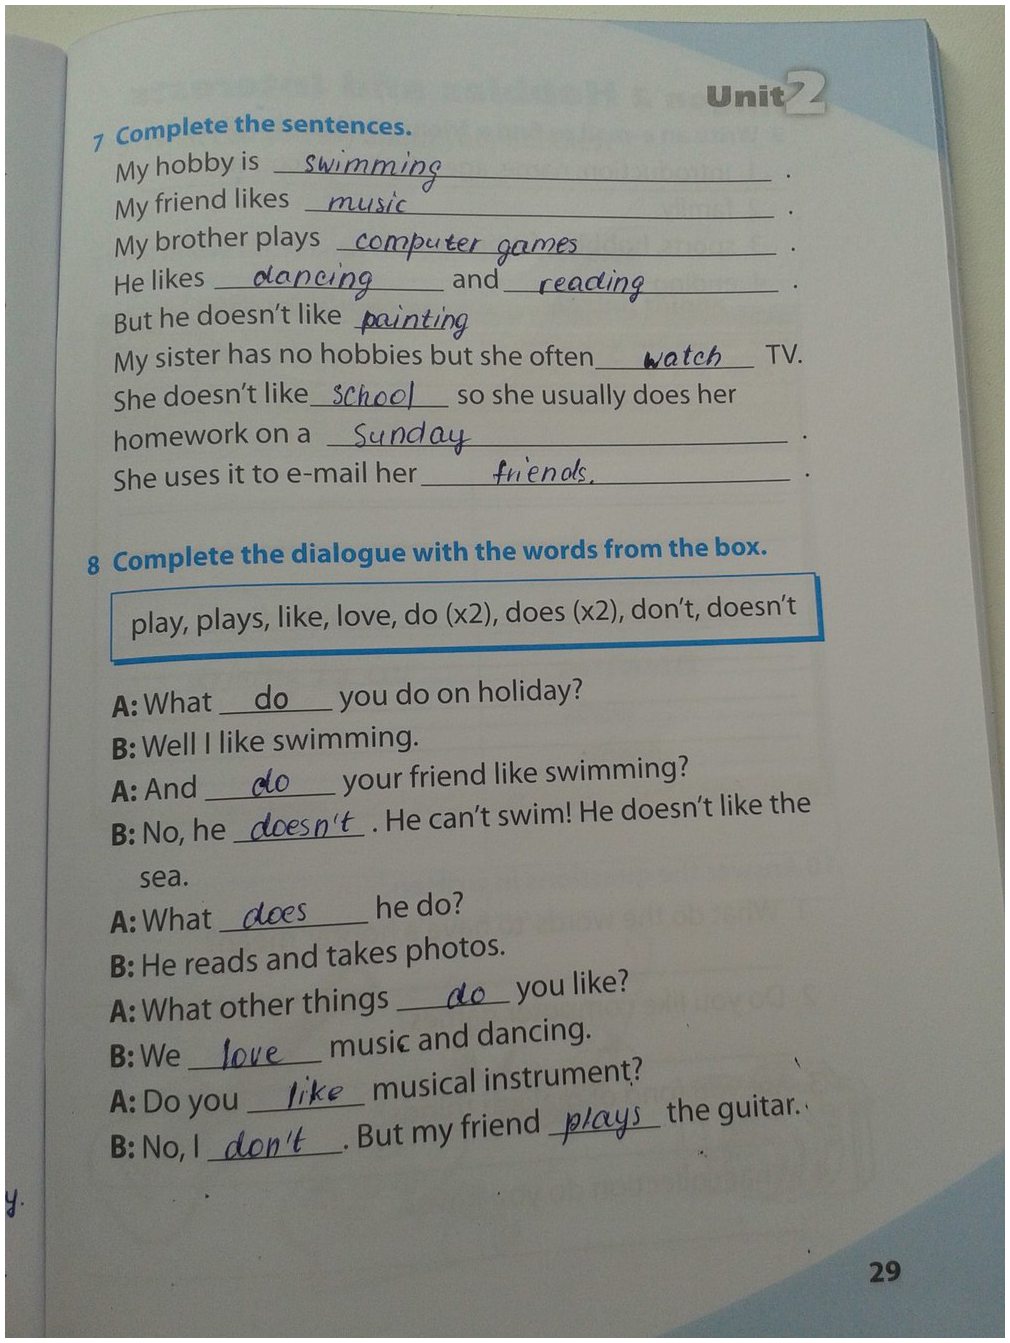 Unit 2
7 Complete the sentences.
My hobby is swimming .
My friend likes music .
My brother plays computer games .
He likes dancing and reading .
But he doesn't like painting
My sister has no hobbies but she often watch TV.
She doesn't like school so she usually does her
homework on a Sunday .
She uses it to e-mail her friends. .
8 Complete the dialogue with the words from the box.
play, plays, like, love, do (x2), does (x2), don't, doesn't
A: What do you do on holiday?
B: Well I like swimming.
A: And do your friend like swimming?
B: No, he doesn't . He can't swim! He doesn't like the
sea.
A: What does he do?
B: He reads and takes photos.
A: What other things do you like?
B: We love music and dancing.
A: Do you like musical instrument?
B: No, I don't . But my friend plays the guitar.
y.
29